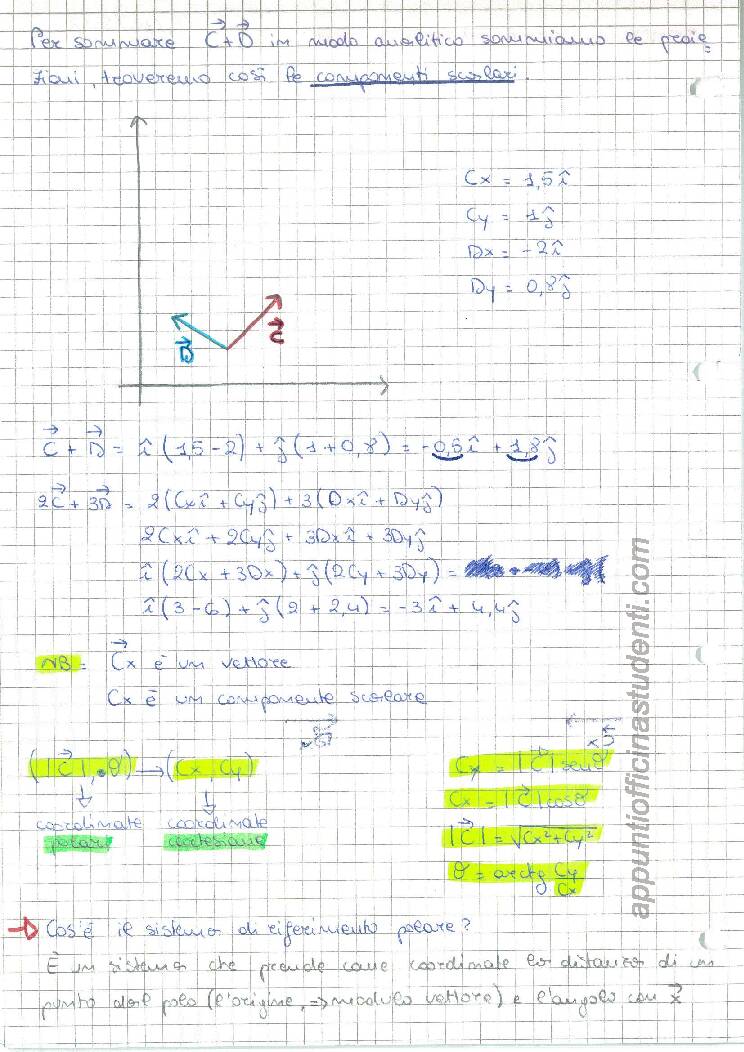 Per sommare C⃗+D⃗ in modo analitico sommiamo le proie
zioni, troveremo così le componenti scalari.
Cx = 1,5î
Cy = 1ĵ
Dx = -2î
Dy = 0,8ĵ
D⃗
C⃗
C⃗ + D⃗ = î(1,5-2) + ĵ(1+0,8) = -0,5î + 1,8ĵ
2C⃗ + 3D⃗ = 2(Cxî + Cyĵ) + 3(Dxî + Dyĵ)
2Cxî + 2Cyĵ + 3Dxî + 3Dyĵ
î(2Cx + 3Dx) + ĵ(2Cy + 3Dy) =
î(3-6) + ĵ(2 + 2,4) = -3î + 4,4ĵ
NB = C⃗x è un vettore
Cx è un componente scalare
(|C⃗|, θ) → (Cx, Cy)
coordinate polari
coordinate cartesiane
Cy = |C⃗| senθ
Cx = |C⃗| cosθ
|C⃗| = √Cx²+Cy²
θ = arctg Cy/Cx
→ Cos'è il sistema di riferimento polare?
È un sistema che prende come coordinate la distanza di un
punto dal polo (l'origine, => modulo vettore) e l'angolo con x⃗
appuntiofficinastudenti.com